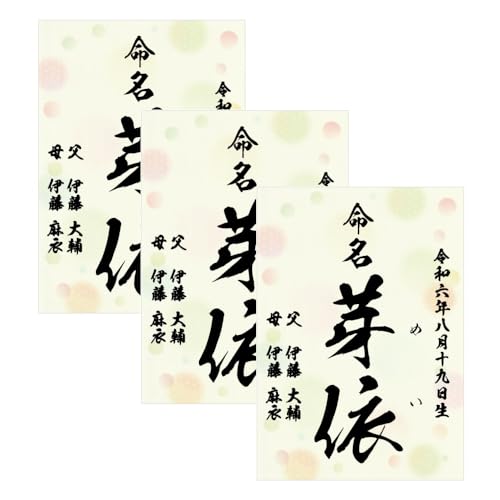 命名
芽
依
令和
父 伊藤 大輔
母 伊藤 麻衣
命名
芽
依
令
父 伊藤 大輔
母 伊藤 麻衣
令和六年八月十九日生
命名
芽依
めい
父 伊藤 大輔
母 伊藤 麻衣